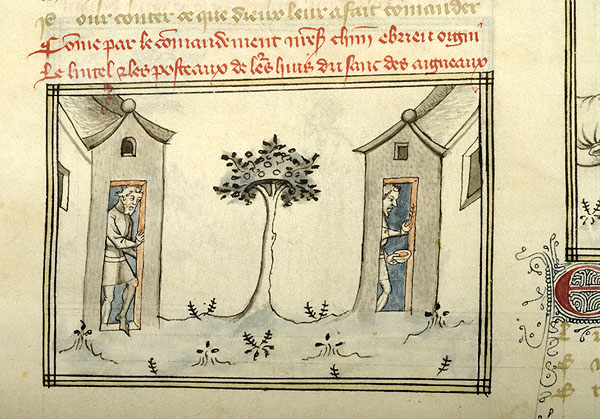 our conter ce que dieux leur a fait commander
Come par le comandement mess chim ebrieu oigni
Le lintel et les posteaux de lers huis du sanc des aigneaux